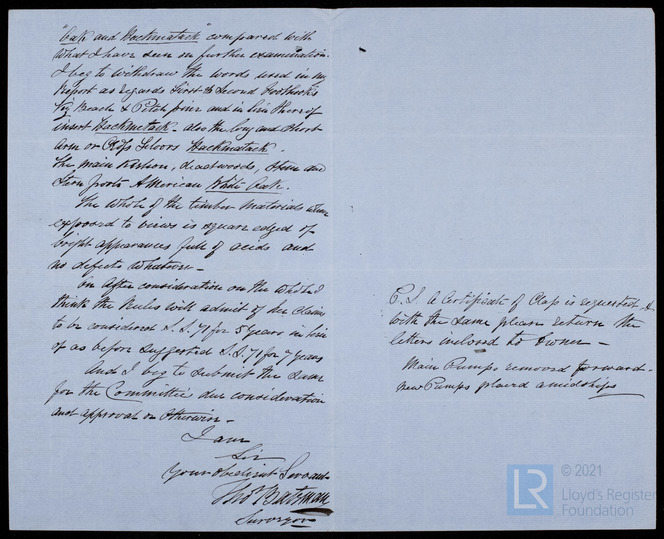 "Oak and Hackmatack" compared with
what I have seen on further examination.
I beg to withdraw the words used in my
Report as regards First & Second Foothooks
Beach & Pitch pine and in lieu thereof
insert Hackmetack - also the long and short
arm or Floors Hackmatack.
The main Keelson, deadwoods, Stem and
Stern posts American White Oak.
The whole of the timber materials when
exposed to views is square edged of
bright appearances full of acids and
no defects whatever -
on after consideration on the whole I
think the Rules will admit of her claims
to be considered for 5 years in lieu
of as before suggested for 7 years
And I beg to submit the same
for the Committee due consideration
and approval or otherwise -
I am
Sir
Your obedient Servant
Thos Bateman
Surveyor
P.S. A Certificate of Class is requested &
with the same please return the
letters inclosed to Owner -
Main Pumps removed forward -
new Pumps placed amidships
LR © 2021
Lloyd's Register
Foundation